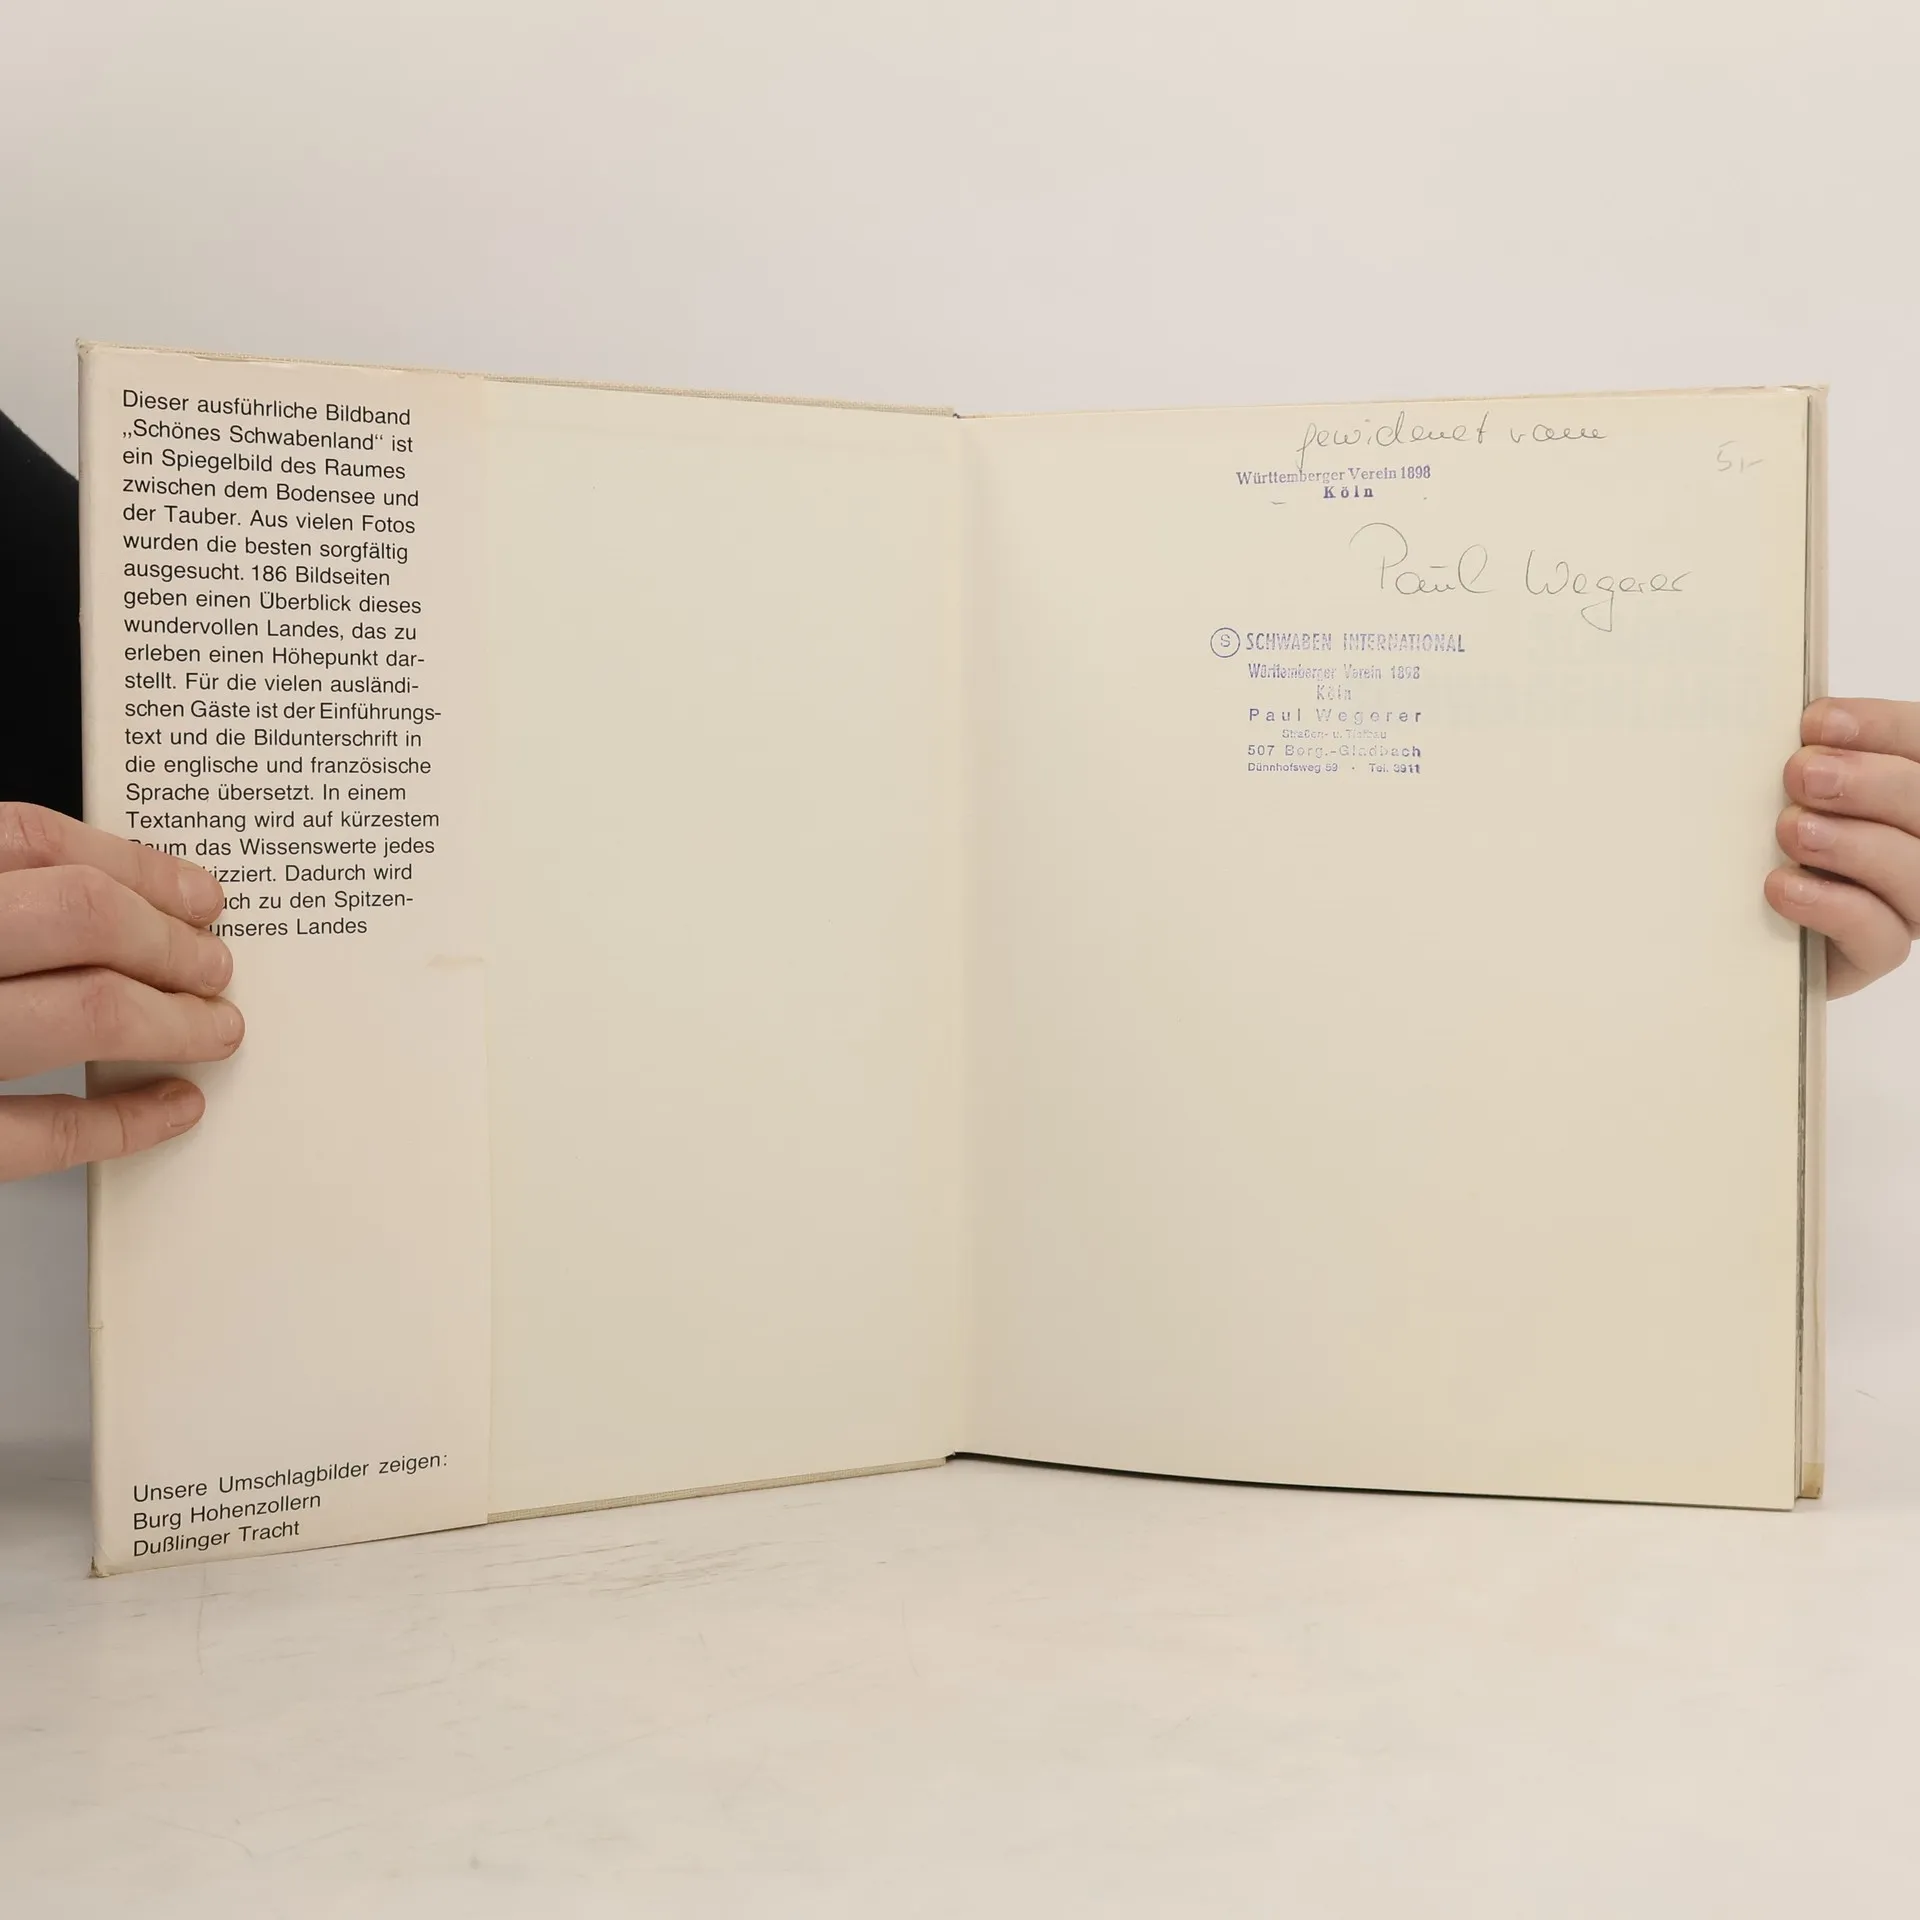 Dieser ausführliche Bildband
„Schönes Schwabenland“ ist
ein Spiegelbild des Raumes
zwischen dem Bodensee und
der Tauber. Aus vielen Fotos
wurden die besten sorgfältig
ausgesucht. 186 Bildseiten
geben einen Überblick dieses
wundervollen Landes, das zu
erleben einen Höhepunkt dar-
stellt. Für die vielen ausländi-
schen Gäste ist der Einführungs-
text und die Bildunterschrift in
die englische und französische
Sprache übersetzt. In einem
Textanhang wird auf kürzestem
Raum das Wissenswerte jedes
Dadurch wird
zu den Spitzen-
unseres Landes
Unsere Umschlagbilder zeigen:
Burg Hohenzollern
Dußlinger Tracht
gewidmet vom
5,-
Württemberger Verein 1898
Köln
Paul Wegerer
S SCHWABEN INTERNATIONAL
Württemberger Verein 1898
Köln
Paul Wegerer
Straßen- u. Tiefbau
507 Berg.-Gladbach
Dünnhofsweg 59 · Tel. 3911